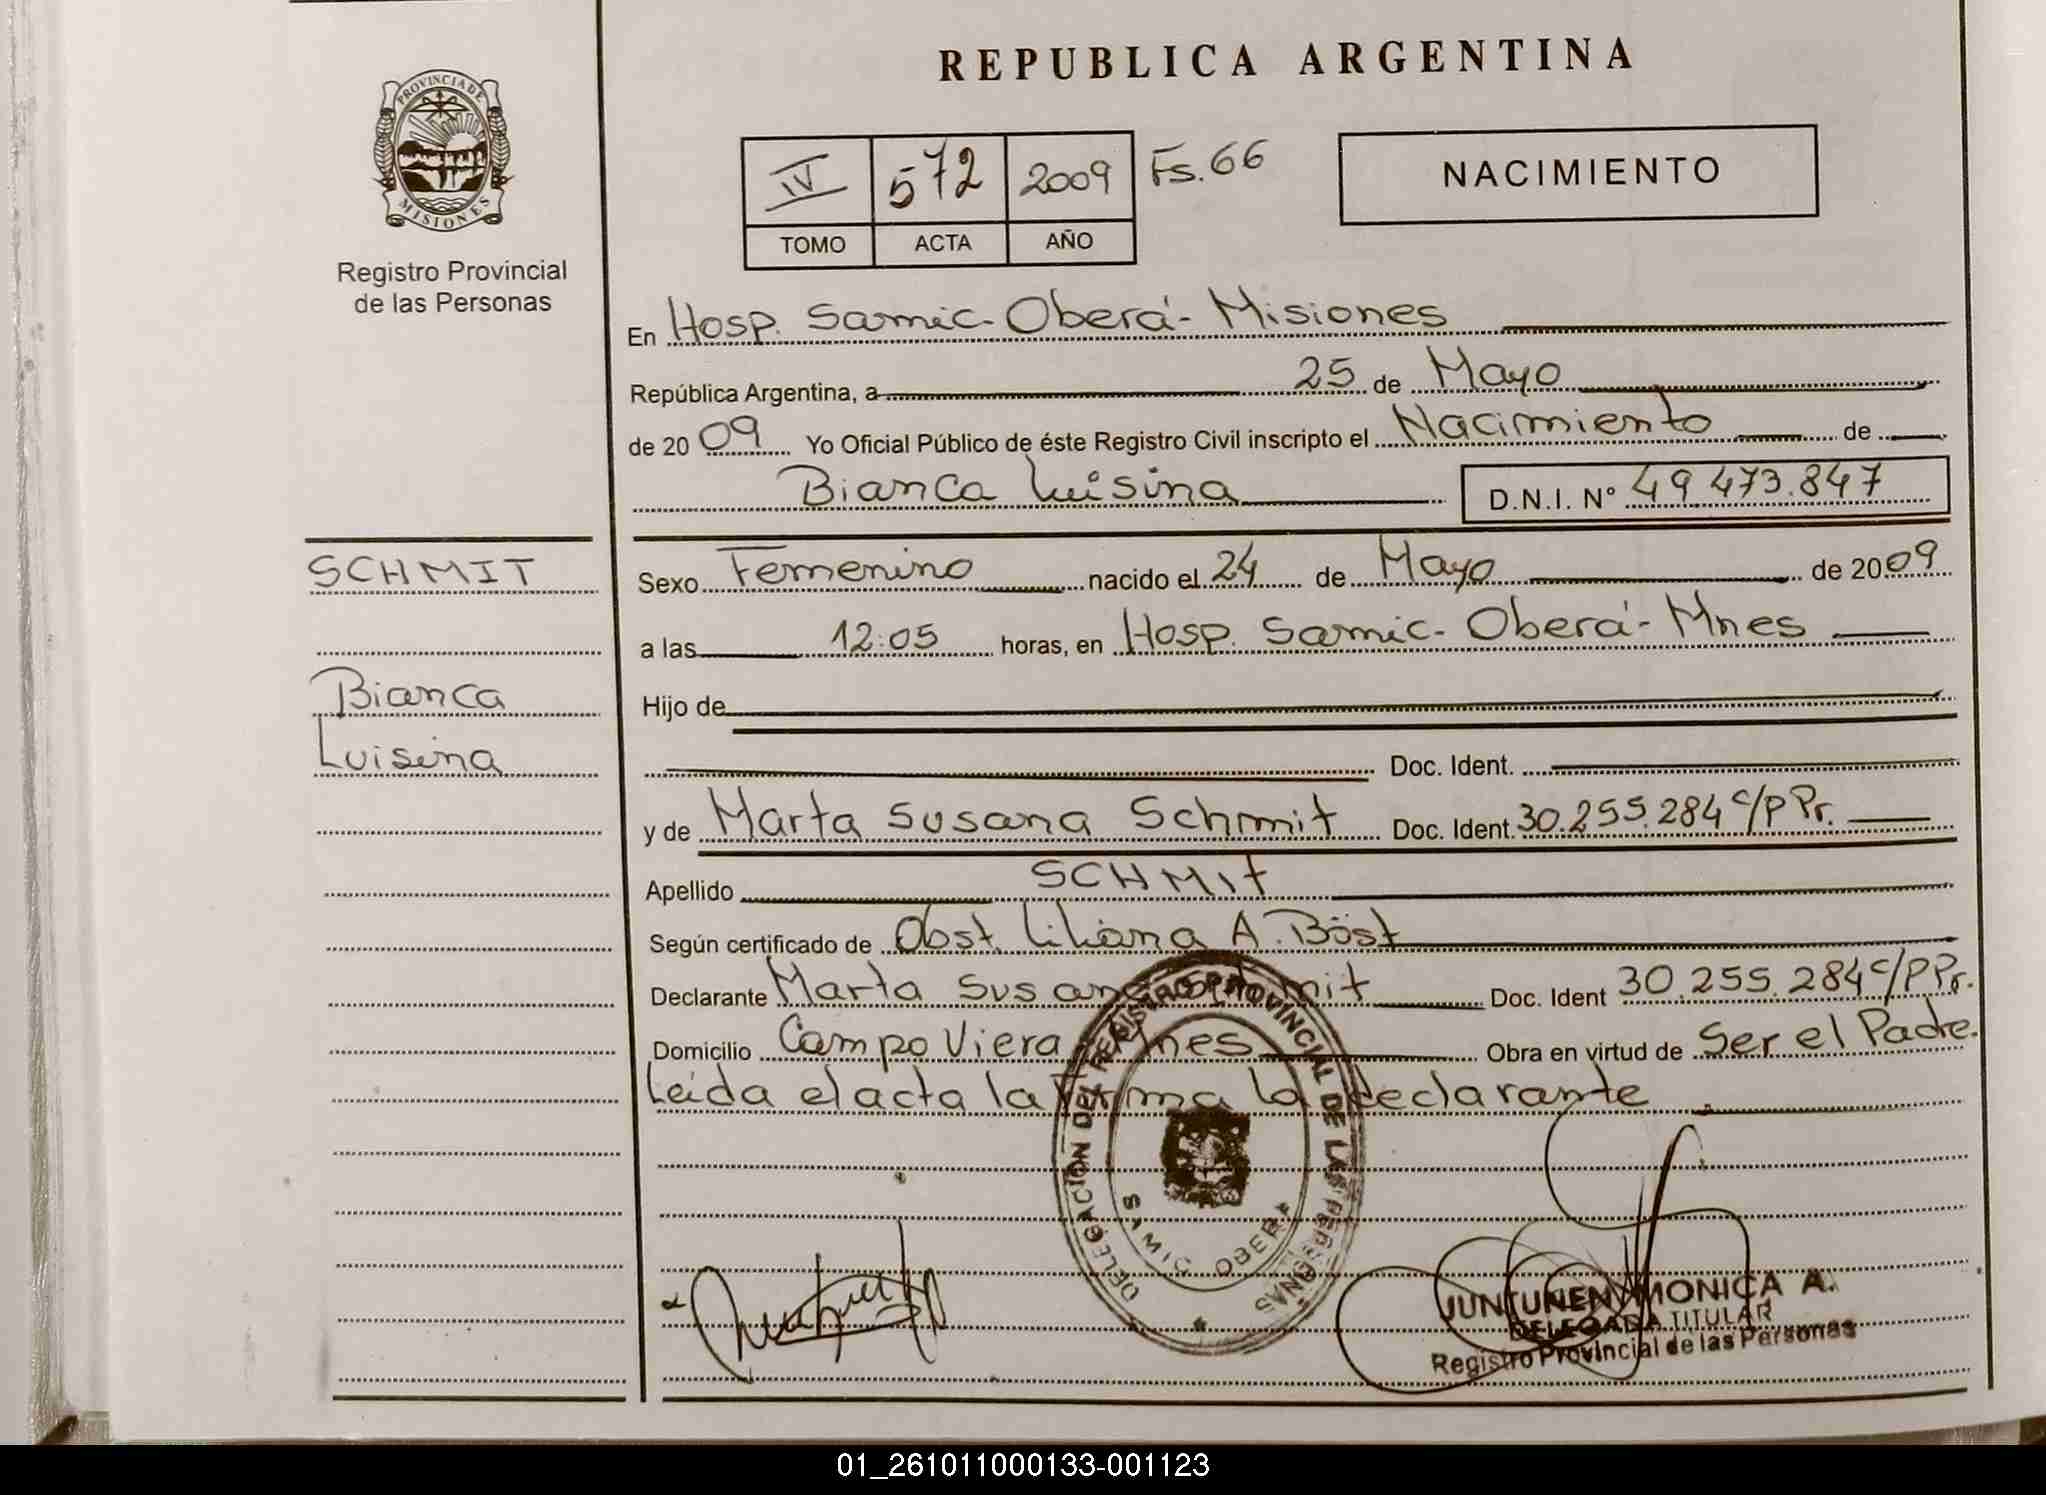 REPUBLICA ARGENTINA
PROVINCIA DE
MISIONES
Registro Provincial
de las Personas
IV 572 2009 Fs. 66
TOMO ACTA AÑO
NACIMIENTO
En Hosp. Samic - Oberá - Misiones
República Argentina, a 25 de Mayo
de 2009 Yo Oficial Público de éste Registro Civil inscripto el Nacimiento de
Bianca Luisina D.N.I. N° 49 473.847
SCHMIT
Bianca
Luisina
Sexo Femenino nacido el 24 de Mayo de 2009
a las 12:05 horas, en Hosp. Samic - Oberá - Mnes
Hijo de
Doc. Ident.
y de Marta Susana Schmit Doc. Ident. 30.255.284 c/p Pr.
Apellido SCHMIt
Según certificado de Obst. Liliana A. Böst
Declarante Marta Susana Schmit Doc. Ident 30.255.284 c/p Pr.
Domicilio Campo Viera Mnes Obra en virtud de Ser el Padre.
Leida el acta la firma la declarante
DELEGACIÓN DEL REGISTRO PROVINCIAL DE LAS PERSONAS
SAMIC OBERA
JUNTUNEN MONICA A.
DELEGADA TITULAR
Registro Provincial de las Personas
01_261011000133-001123